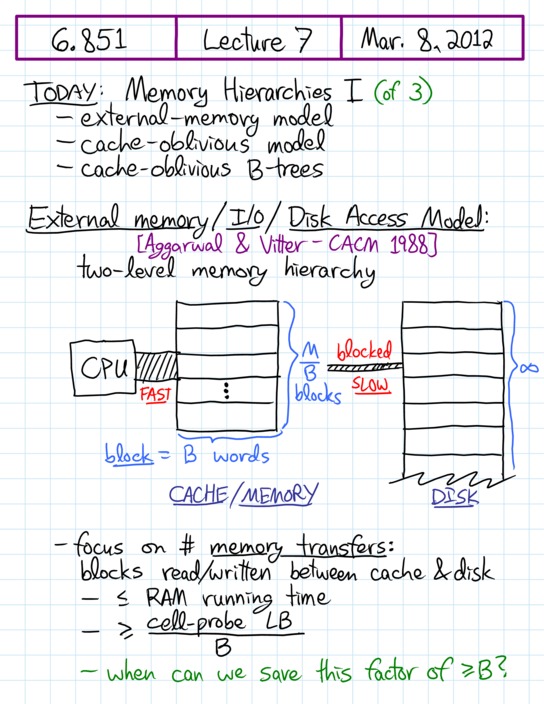 6.851 Lecture 7 Mar. 8, 2012
TODAY: Memory Hierarchies I (of 3)
- external-memory model
- cache-oblivious model
- cache-oblivious B-trees
External memory/I/O/Disk Access Model:
[Aggarwal & Vitter - CACM 1988]
two-level memory hierarchy
CPU
FAST
M
B
blocks
blocked
SLOW
∞
block = B words
CACHE/MEMORY
DISK
- focus on # memory transfers:
blocks read/written between cache & disk
- ≤ RAM running time
- ≥ cell-probe LB
B
- when can we save this factor of ≥B?